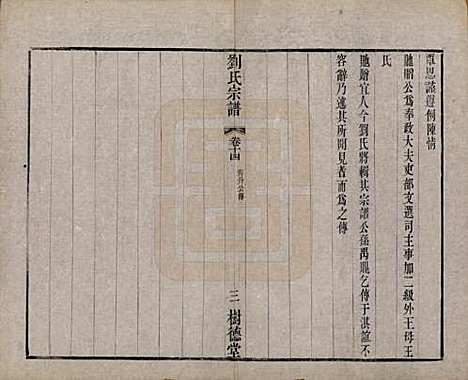 覃恩謹遵例陳情
貤贈公爲奉政大夫吏部文選司主事加二級外王母王
氏
貤贈宜人今劉氏將輯其宗譜公孫禹㔫乞傳于淇誼不
容辭乃述其所聞見者而爲之傳
劉氏宗譜
卷十四
三
樹德堂